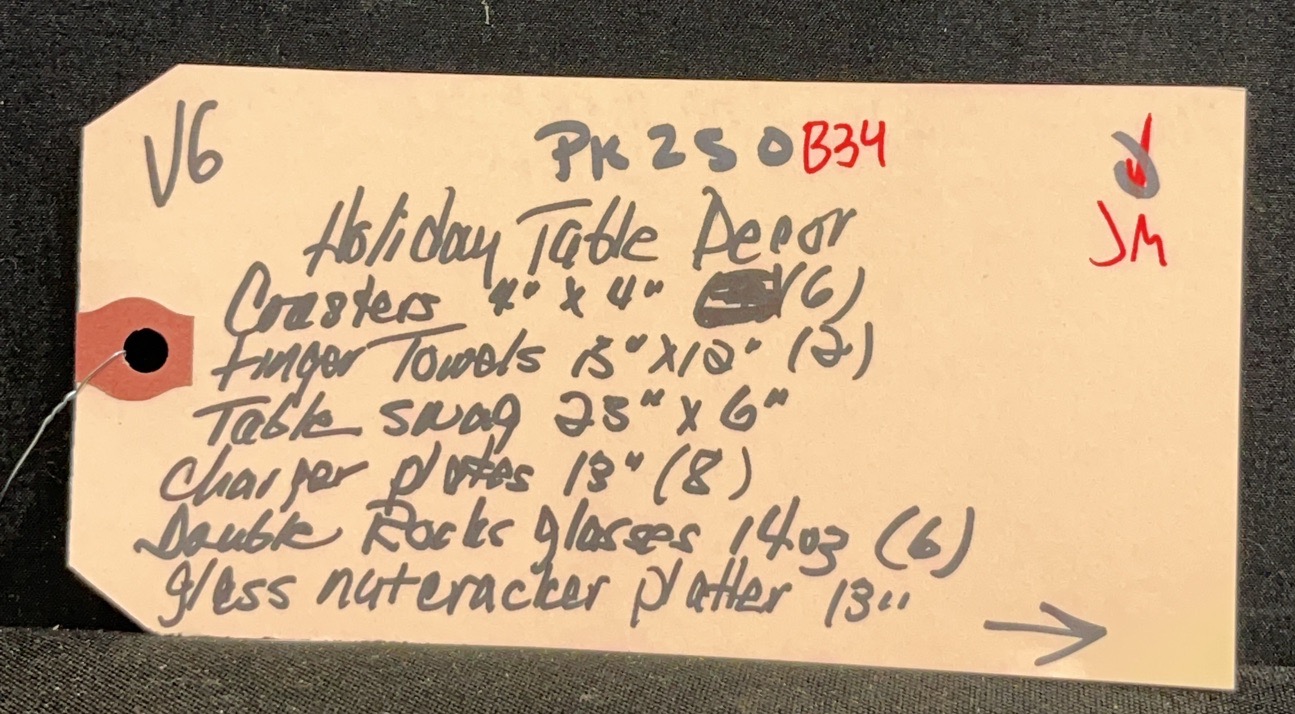 V6
PK 250 B34
JM
Holiday Table Decor
Coasters 4" x 4" (6)
Finger Towels 15" x 12" (2)
Table swag 25" x 6"
Charger plates 13" (8)
Double Rocks glasses 14oz (6)
glass nutcracker platter 13"
→